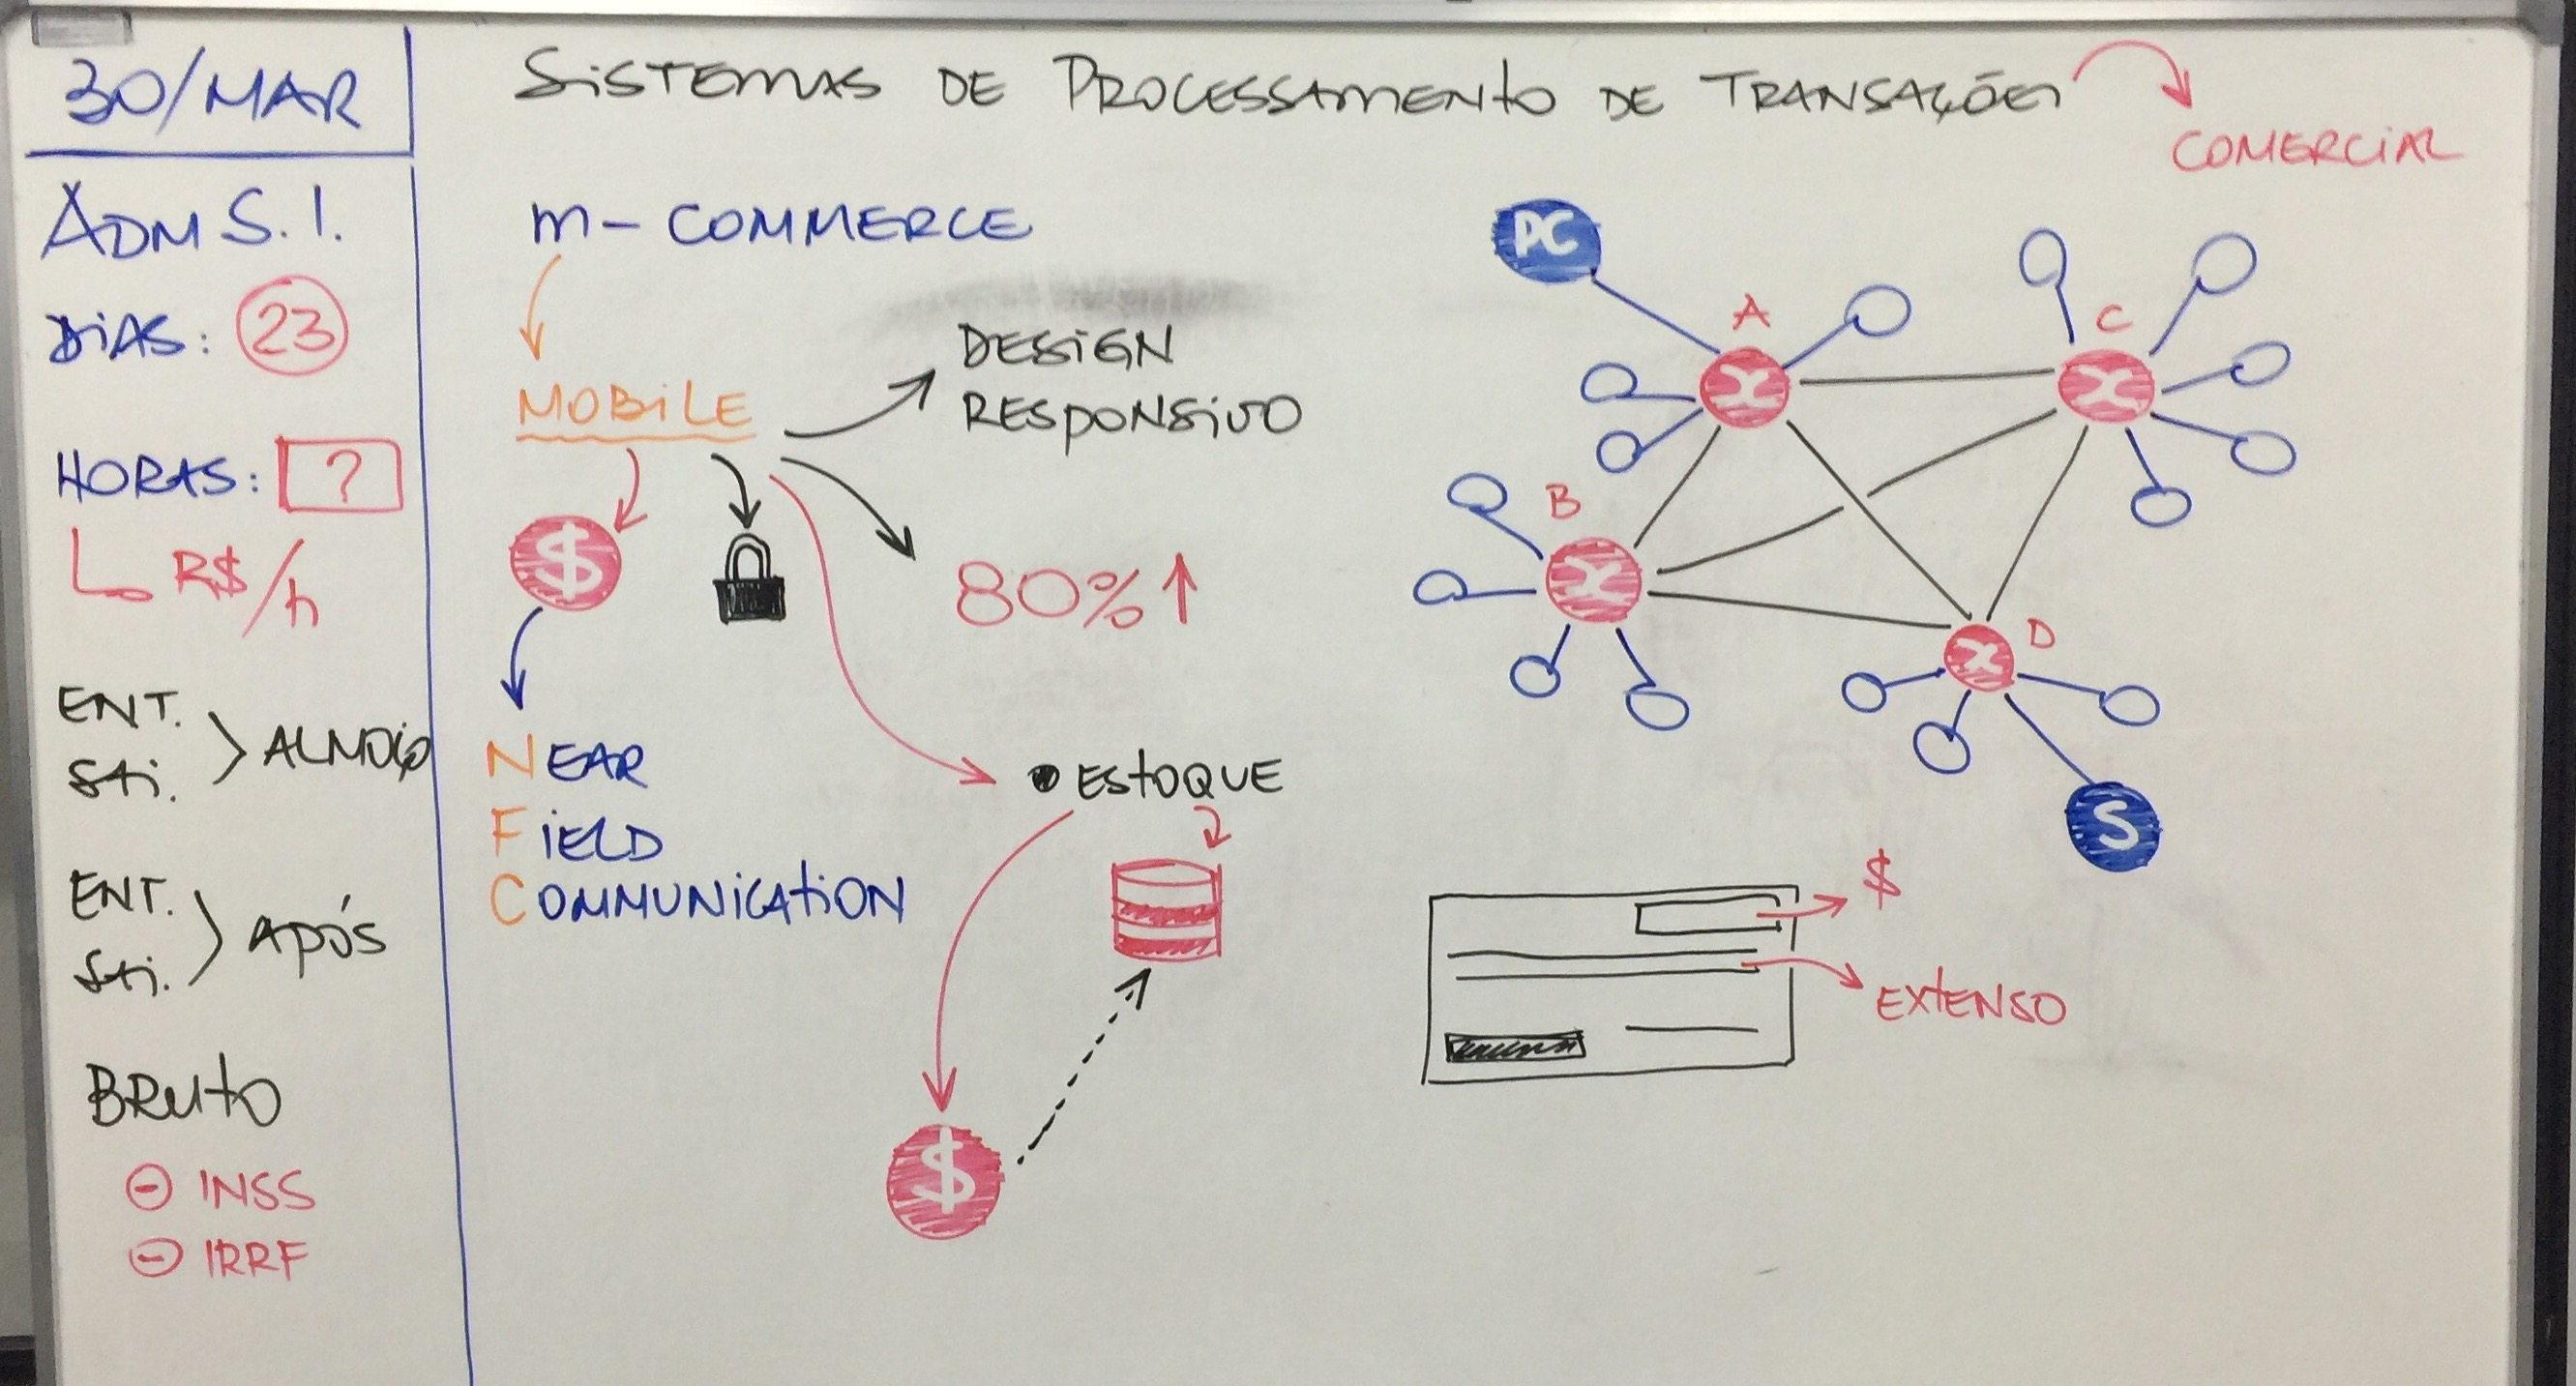 30/MAR
ADM S.I.
DIAS: 23
HORAS: ?
R$/h
ENT.
SAI.
ALMOÇO
ENT.
SAI.
APÓS
BRUTO
- INSS
- IRRF
SISTEMAS DE PROCESSAMENTO DE TRANSAÇÕES
COMERCIAL
m-COMMERCE
MOBILE
DESIGN
RESPONSIVO
$
80%↑
NEAR
FIELD
COMMUNICATION
• ESTOQUE
$
PC
A
C
X
X
B
X
D
X
S
$
EXTENSO